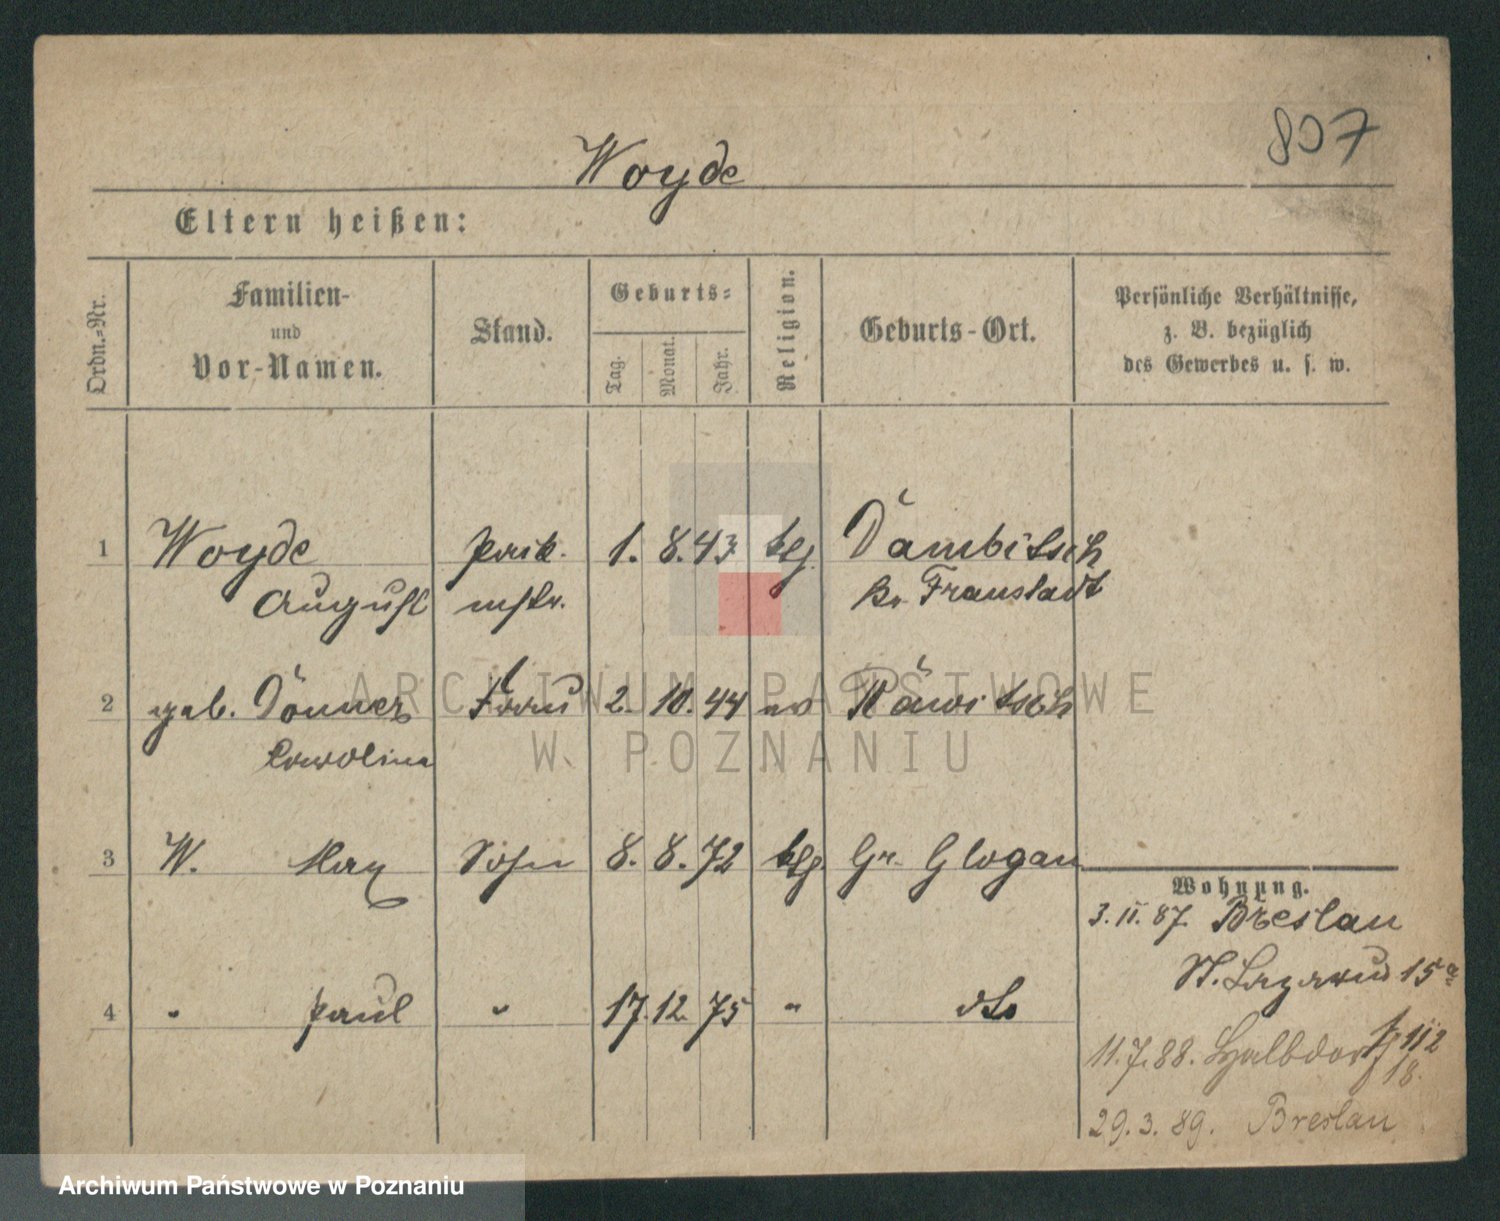 807
Woyde
Eltern heißen:
Ordn.-Nr.
Familien-
und
Vor-Namen.
Stand.
Geburts-
Tag.
Monat.
Jahr.
Religion.
Geburts-Ort.
Persönliche Verhältnisse,
z. B. bezüglich
des Gewerbes u. s. w.
1 Woyde 1. 8. 43 ktg. Dambitsch
August mstr. Kr. Fraustadt
2 geb. Dönner Frau 2. 10. 44 ev Rawitsch
Carolina
3 W. Max Sohn 8. 8. 72 ktg. Gr. Glogau
Wohnung.
3. 11. 87. Breslau
St. Lazarus 15a
4 " Paul " 17. 12. 75 " dto
11. 7. 88. Halbdorf 112
18.
29. 3. 89. Breslau
ARCHIWUM PAŃSTWOWE
W POZNANIU
Archiwum Państwowe w Poznaniu